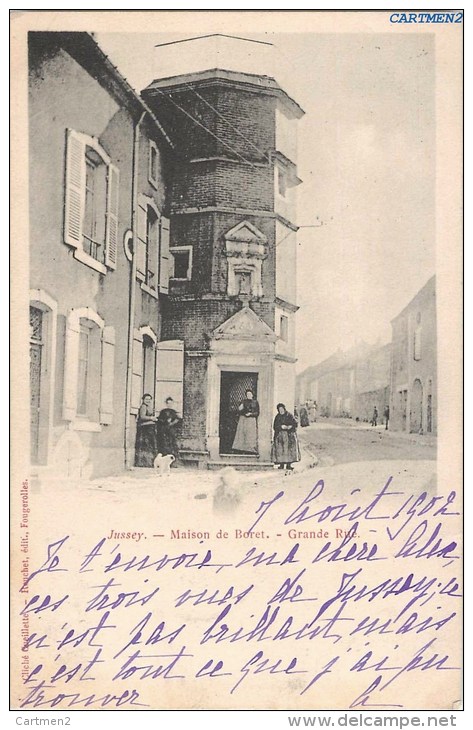 CARTMEN2
Jussey. — Maison de Boret. - Grande Rue.
7 Août 1902
Je t'envoie, ma chère Alex,
ces trois vues de Jussey; ce
n'est pas brillant, mais
c'est tout ce que j'ai pu
trouver
Cliché - Reuchet, édit., Fougerolles.
Cartmen2